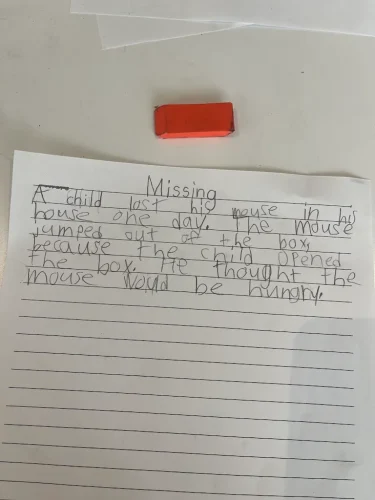 Missing
A child lost his mouse in his
house one day. The mouse
jumped out of the box,
because the child opened
the box. He thought the
mouse would be hungry.